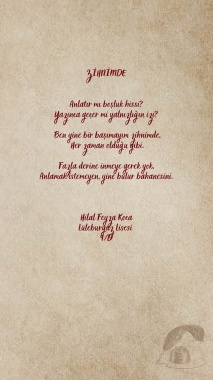 ZİHNİMDE
Anlatır mı boşluk hissi?
Yazınca geçer mi yalnızlığın izi?
Ben yine bir başımayım zihnimde,
Her zaman olduğu gibi.
Fazla derine inmeye gerek yok,
Anlamak istemeyen, yine bulur bahanesini.
Hilal Feyza Koca
Lüleburgaz Lisesi